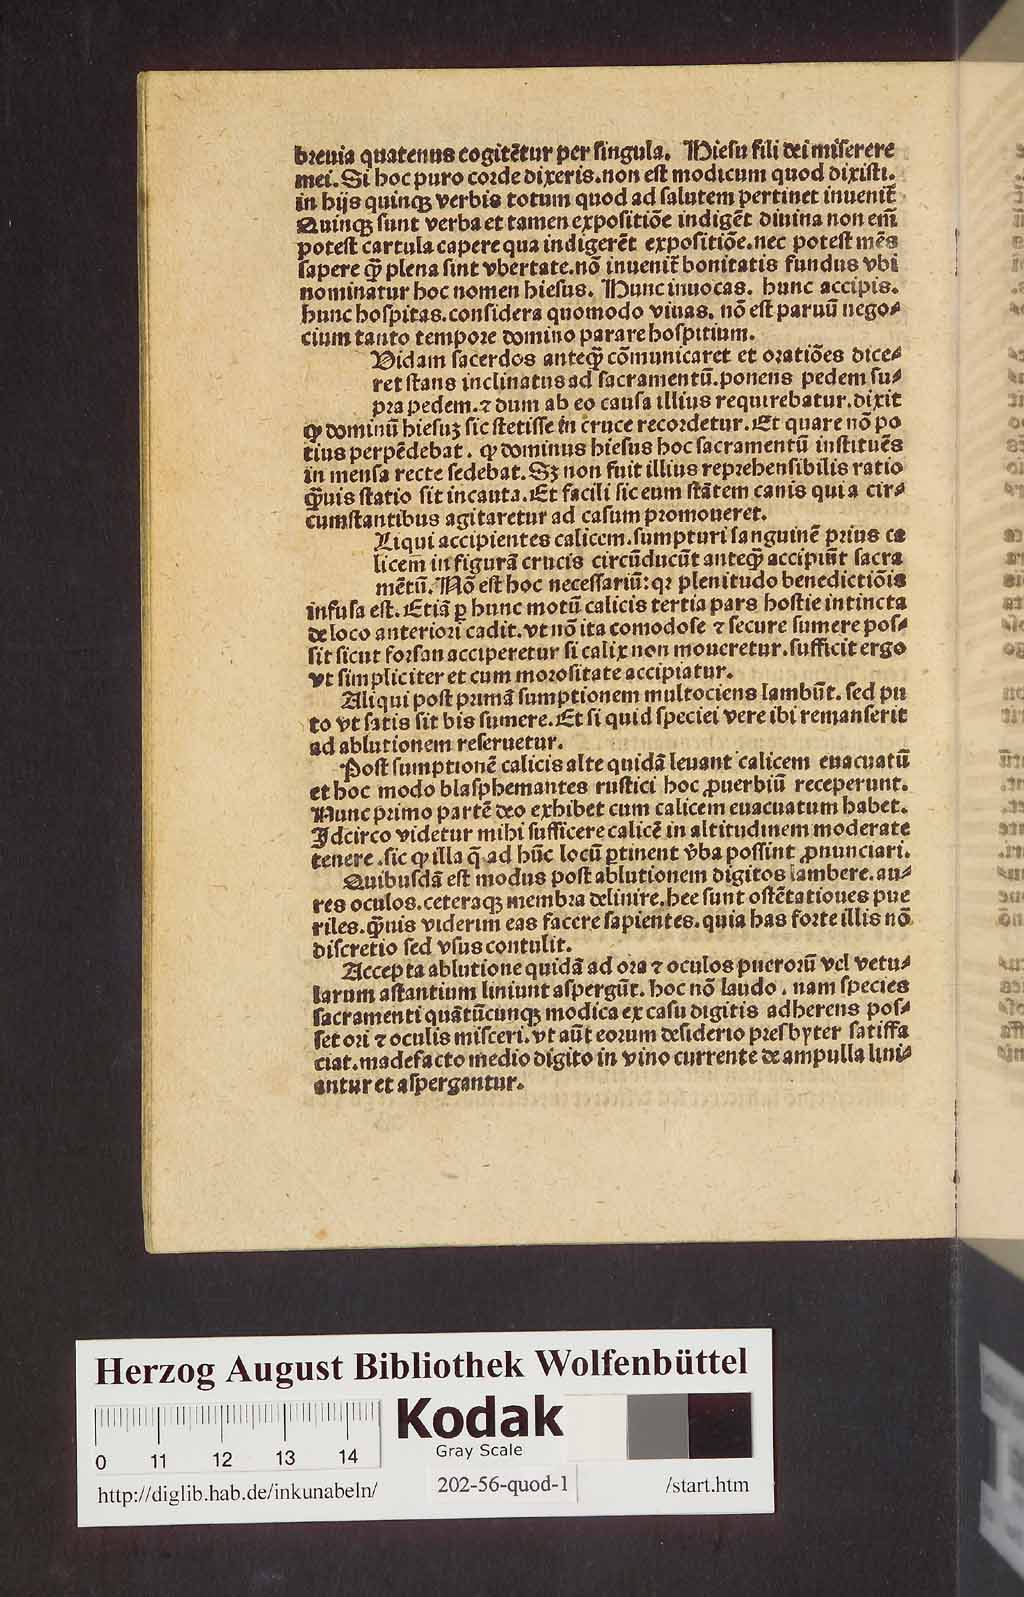 breuia quatenus cogitētur per singula. Hiesu fili dei miserere
mei. Si hoc puro corde dixeris. non est modicum quod dixisti.
in hijs quinqꝫ verbis totum quod ad salutem pertinet inuenit᷑
Quinqꝫ sunt verba et tamen expositiōe indigēt diuina non em̄
potest cartula capere qua indigerēt expositiōe. nec potest mēs
sapere qꝫ̄ plena sint vbertate. nō inuenit᷑ bonitatis fundus vbi
nominatur hoc nomen hiesus. Hunc inuocas. hunc accipis.
hunc hospitas. considera quomodo viuas. nō est paruū nego⸗
cium tanto tempore domino parare hospitium.
Uidam sacerdos anteqꝫ̄ cōmunicaret et oratiōes dice⸗
ret stans inclinatus ad sacramentū. ponens pedem su⸗
pra pedem. ⁊ dum ab eo causa illius requirebatur. dixit
ꝙ dominū hiesuꝫ sic stetisse in cruce recordetur. Et quare nō po
tius perpēdebat. ꝙ dominus hiesus hoc sacramentū instituēs
in mensa recte sedebat. Sꝫ non fuit illius reprehensibilis ratio
qꝫ̄uis statio sit incauta. Et facili sic eum stātem canis qui a cir⸗
cumstantibus agitaretur ad casum promoueret.
Liqui accipientes calicem. sumpturi sanguinē prius ca
licem in figurā crucis circūducūt anteqꝫ̄ accipiūt sacra
mētū. Nō est hoc necessariū: qꝛ plenitudo benedictiōis
infusa est. Etiā ꝑ hunc motū calicis tertia pars hostie intincta
de loco anteriori cadit. vt nō ita comodose ⁊ secure sumere pos⸗
sit sicut forsan acciperetur si calix non moueretur. sufficit ergo
vt simpliciter et cum morositate accipiatur.
Aliqui post primā sumptionem multociens lambūt. sed pu
to vt satis sit bis sumere. Et si quid speciei vere ibi remanserit
ad ablutionem reseruetur.
Post sumptionē calicis alte quidā leuant calicem euacuatū
et hoc modo blasphemantes rustici hoc ꝓuerbiū receperunt.
Nunc primo partē deo exhibet cum calicem euacuatum habet.
Idcirco videtur mihi sufficere calicē in altitudinem moderate
tenere. sic ꝙ illa q̄ ad hūc locū ꝑtinent v̄ba possint ꝓnunciari.
Quibusdā est modus post ablutionem digitos lambere. au⸗
res oculos. ceteraqꝫ membra delinire. hee sunt ostētationes pue
riles. qꝫ̄uis viderim eas facere sapientes. quia has forte illis nō
discretio sed vsus contulit.
Accepta ablutione quidā ad ora ⁊ oculos puerorū vel vetu⸗
larum astantium liniunt aspergūt. hoc nō laudo. nam species
sacramenti quātūcunqꝫ modica ex casu digitis adherens pos⸗
set ori ⁊ oculis misceri. vt aūt eorum desiderio presbyter satisfa
ciat. madefacto medio digito in vino currente de ampulla lini⸗
antur et aspergantur.
Herzog August Bibliothek Wolfenbüttel
Kodak
Gray Scale
0 11 12 13 14
http://diglib.hab.de/inkunabeln/ 202-56-quod-1 /start.htm